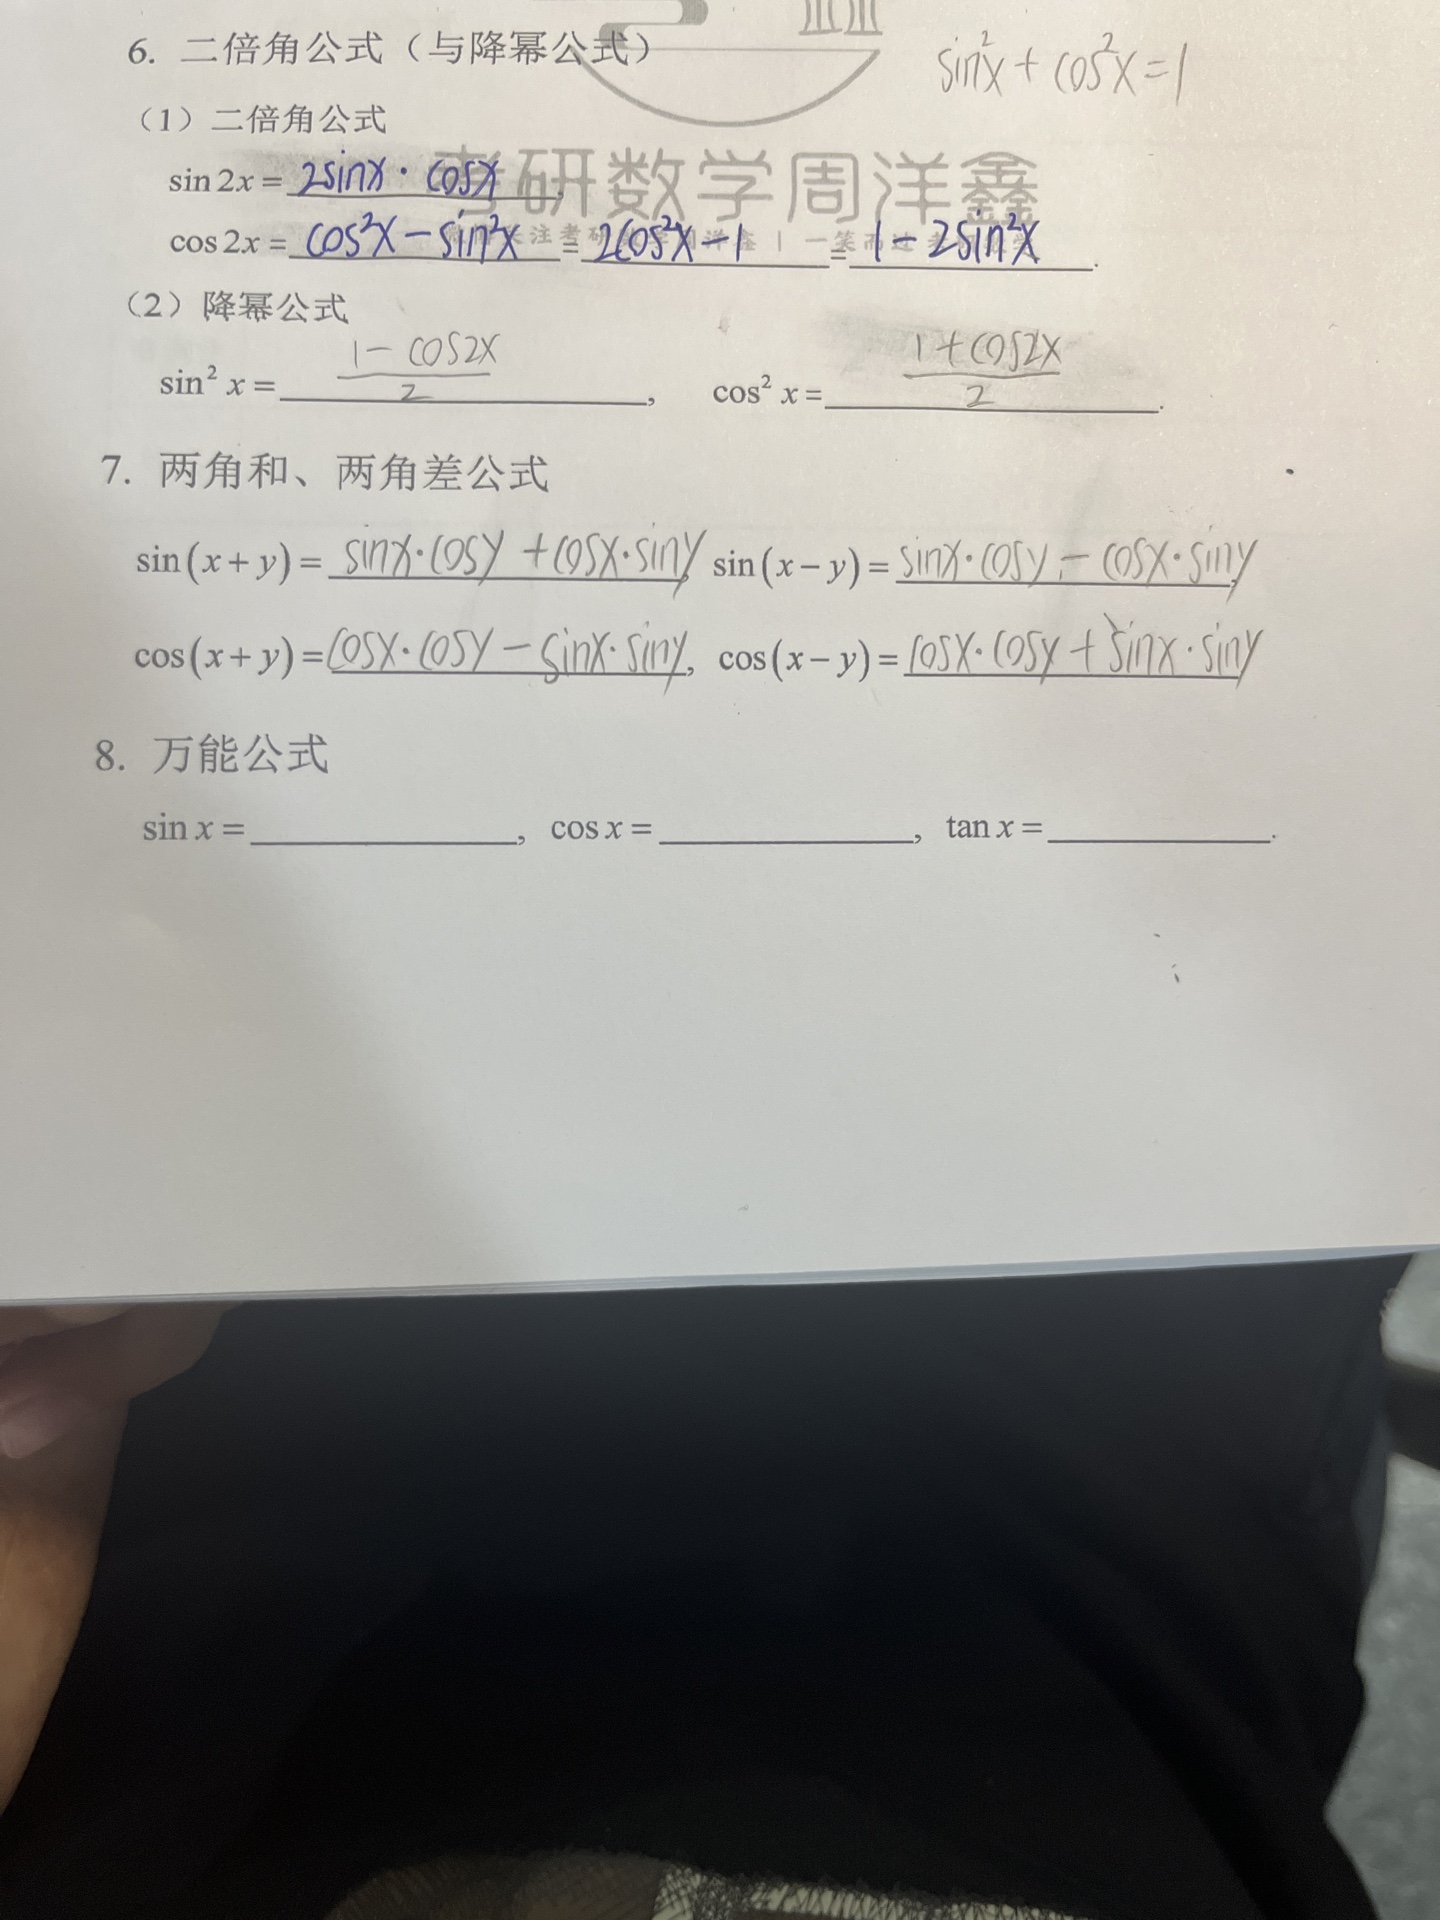 6. 二倍角公式（与降幂公式）
sin²x + cos²x = 1
（1）二倍角公式
考研数学周洋鑫
sin 2x = 2sinx · cosx,
cos 2x = cos²x - sin²x = 2cos²x - 1 = 1 - 2sin²x.
（2）降幂公式
sin² x = (1 - cos2x)/2, cos² x = (1 + cos2x)/2.
7. 两角和、两角差公式
sin(x + y) = sinx·cosy + cosx·siny, sin(x - y) = sinx·cosy - cosx·siny,
cos(x + y) = cosx·cosy - sinx·siny, cos(x - y) = cosx·cosy + sinx·siny
8. 万能公式
sin x = ______, cos x = ______, tan x = ______.